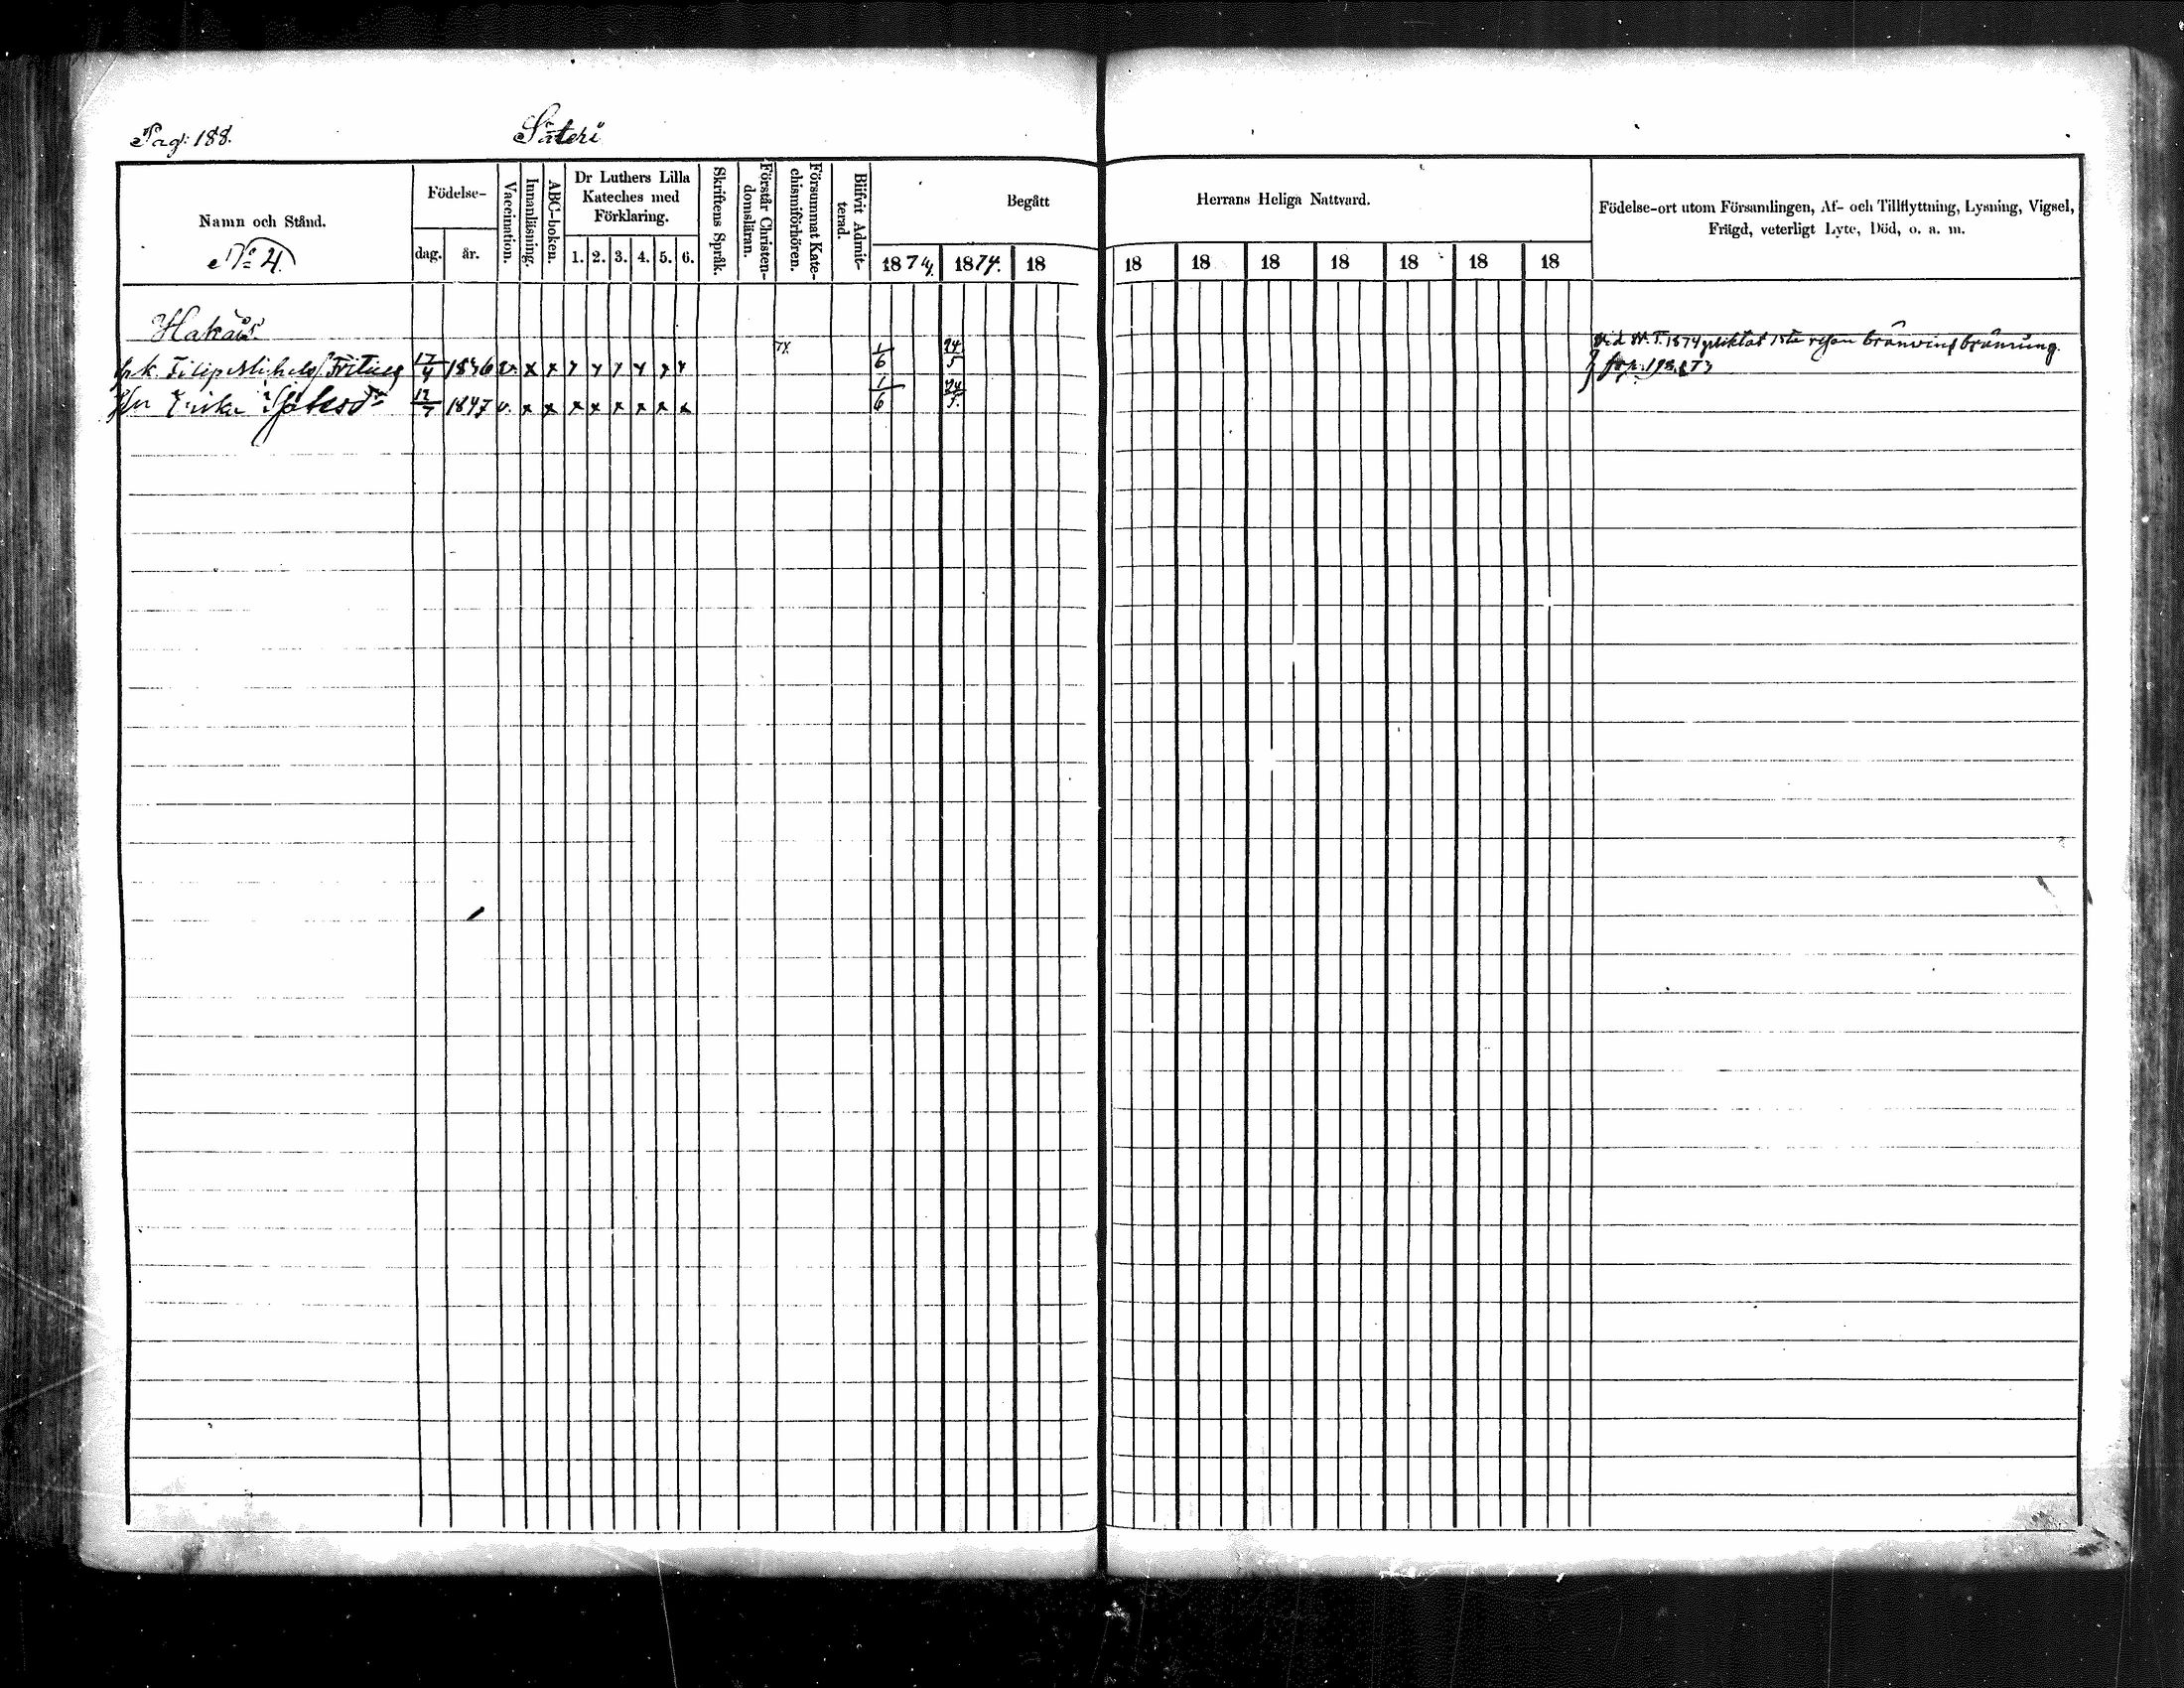 Pag: 188.
Säteri
Namn och Stånd.
No 4.
Födelse-
dag.
år.
Vaccination.
Innanläsning.
ABC-boken.
Dr Luthers Lilla
Kateches med
Förklaring.
1. 2. 3. 4. 5. 6.
Skriftens Språk.
Förstår Christen-
domsläran.
Försummat Kate-
chismiförhören.
Blifvit Admit-
terad.
Begått
Herrans Heliga Nattvard.
1874. 1874. 18 18 18 18 18 18 18 18
Födelse-ort utom Församlingen, Af- och Tillflyttning, Lysning, Vigsel,
Frägd, veterligt Lyte, Död, o. a. m.
Hakäs
Filip Michels 17/4 1846 v. x x x x x x x x 1/6 24/5
vid W. T. 1874 pliktat 1sta resan bränvins bränning.
Hu 12/7 1847 v. x x x x x x x x 1/6 24/5.